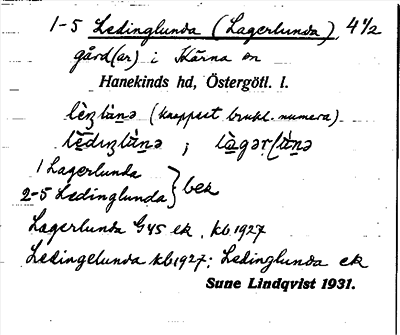 1-5 Ledinglunda (Lagerlunda) 4 1/2
gård(ar) i Kärna sn
Hanekinds hd, Östergötl. l.
(knappast brukl. numera)
;
1 Lagerlunda
2-5 Ledinglunda } bek
Lagerlunda G45 ek, kb 1927
Ledingelunda kb 1927; Ledinglunda ek
Sune Lindqvist 1931.